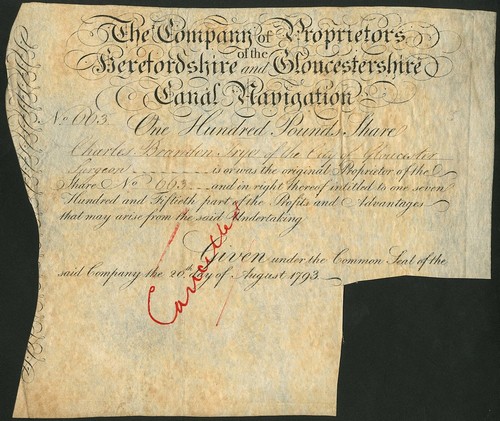 The Company of Proprietors
of the
Herefordshire and Gloucestershire
Canal Navigation
No 663.
One Hundred Pounds Share
Charles Brandon Trye of the City of Gloucester
Surgeon is or was the original Proprietor of the
Share No 663 and in right thereof intitled to one seven
Hundred and Fiftieth part of the Profits and Advantages
that may arise from the said Undertaking
Given under the Common Seal of the
said Company the 20th day of August 1793.
Cancelled